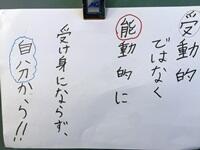 受動的
ではなく
能動的に
受け身にならず、
自分から!!